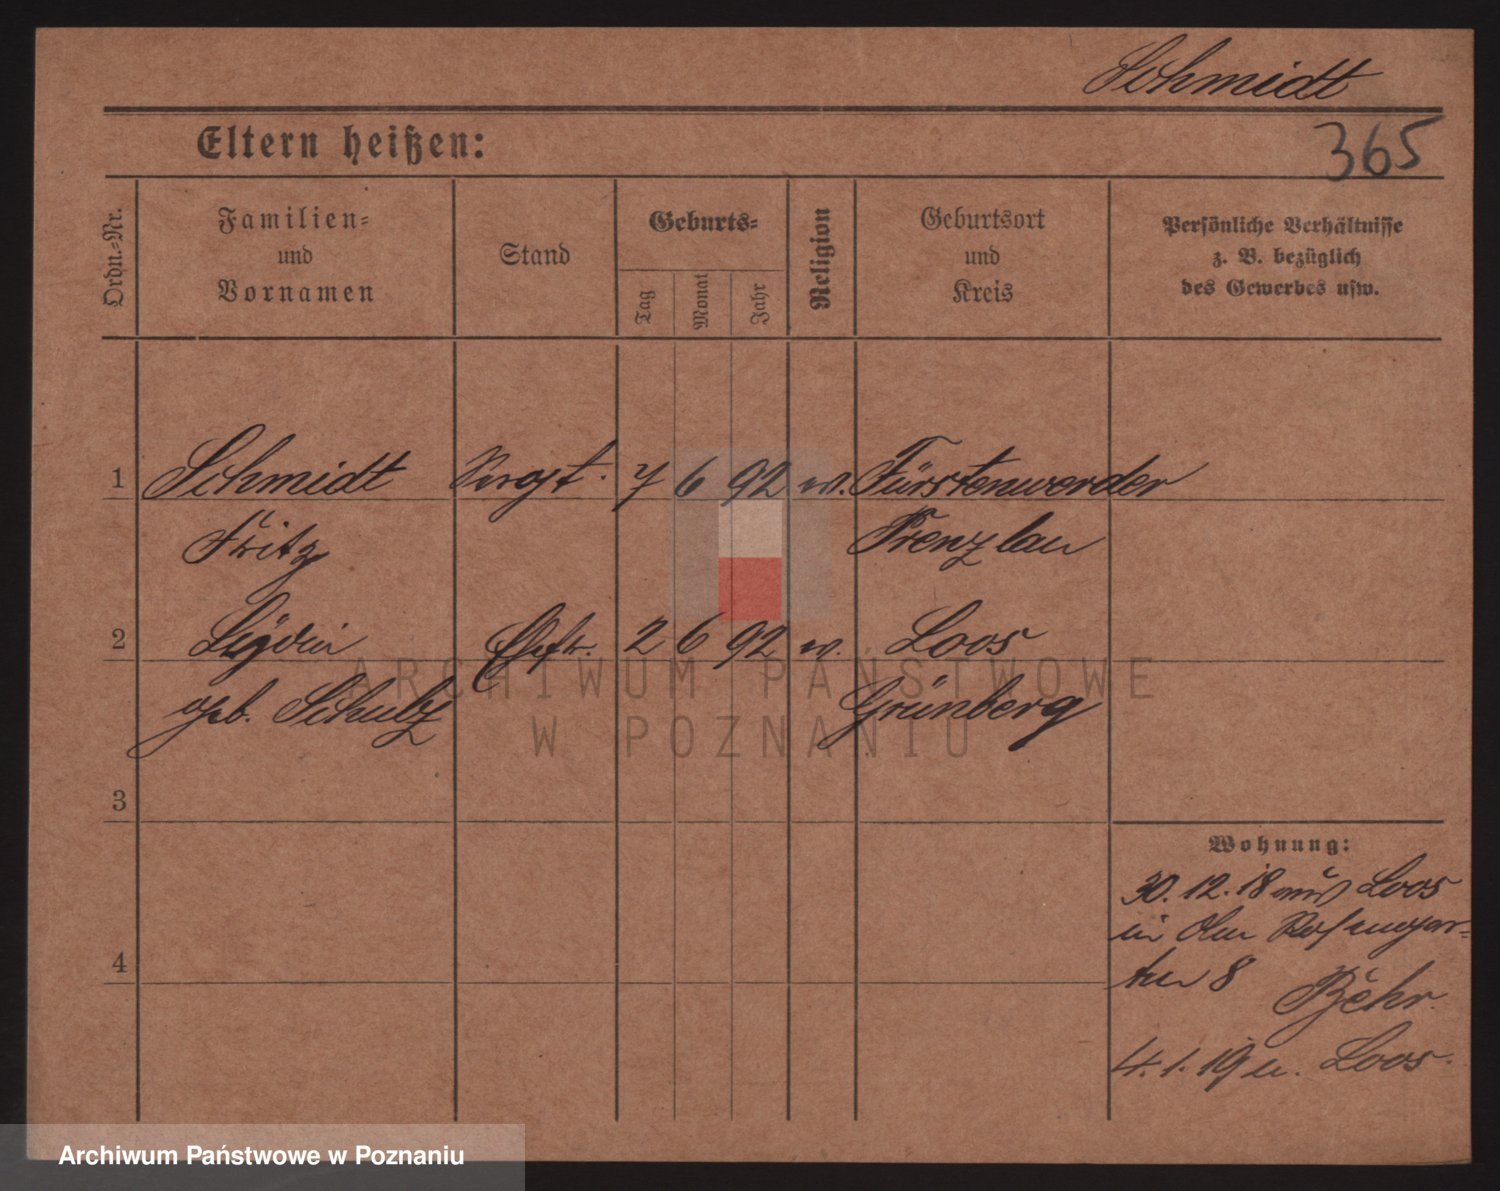 Schmidt
Eltern heißen:
365
Ordn.-Nr.
Familien-
und
Vornamen
Stand
Geburts-
Tag
Monat
Jahr
Religion
Geburtsort
und
Kreis
Persönliche Verhältnisse
z. B. bezüglich
des Gewerbes usw.
1 Schmidt 7 6 92 Fürstenwerder
Fritz Prenzlau
2 Ehefr. 2 6 92 Loos
geb. Schulz Grünberg
ARCHIWUM PAŃSTWOWE
W POZNANIU
3
4
Wohnung:
30.12.18 aus Loos
in
ten 8
4.1.19 n. Loos.
Archiwum Państwowe w Poznaniu